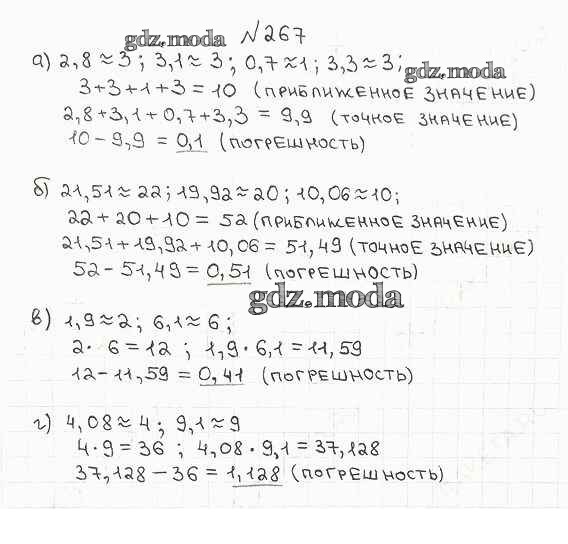 №267
gdz.moda
а) 2,8≈3; 3,1≈3; 0,7≈1; 3,3≈3;
gdz.moda
3+3+1+3=10 (ПРИБЛИЖЕННОЕ ЗНАЧЕНИЕ)
2,8+3,1+0,7+3,3=9,9 (ТОЧНОЕ ЗНАЧЕНИЕ)
10-9,9=0,1 (ПОГРЕШНОСТЬ)
б) 21,51≈22; 19,92≈20; 10,06≈10;
22+20+10=52 (ПРИБЛИЖЕННОЕ ЗНАЧЕНИЕ)
21,51+19,92+10,06=51,49 (ТОЧНОЕ ЗНАЧЕНИЕ)
52-51,49=0,51 (ПОГРЕШНОСТЬ)
gdz.moda
в) 1,9≈2; 6,1≈6;
2·6=12; 1,9·6,1=11,59
12-11,59=0,41 (ПОГРЕШНОСТЬ)
г) 4,08≈4; 9,1≈9
4·9=36; 4,08·9,1=37,128
37,128-36=1,128 (ПОГРЕШНОСТЬ)